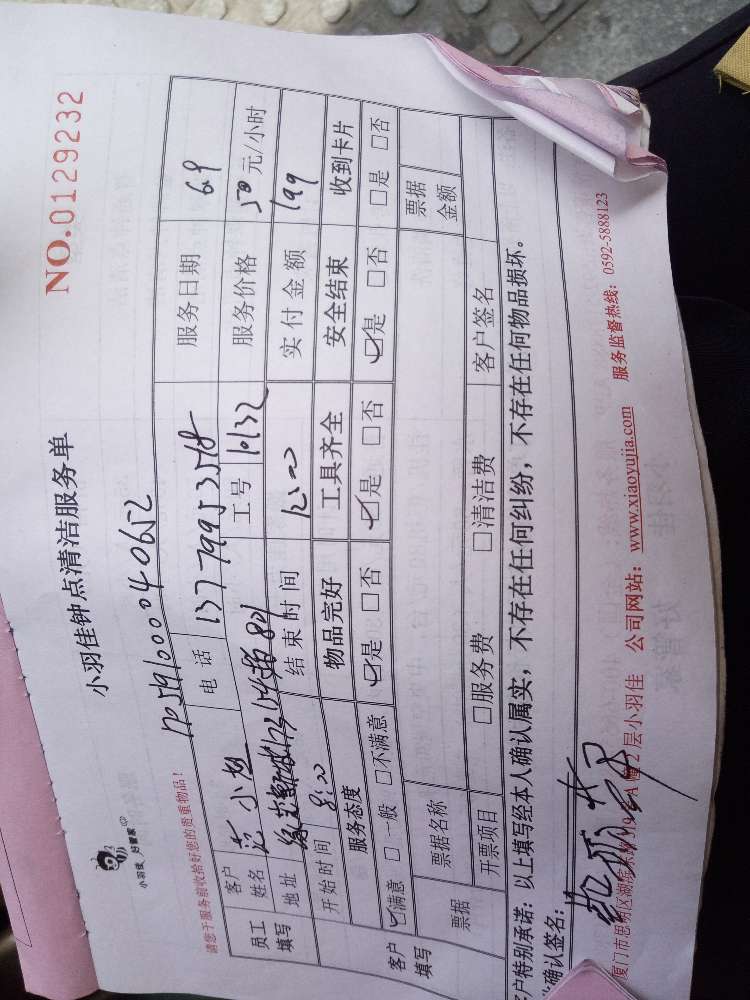 小羽佳 好管家
小羽佳钟点清洁服务单
NO.0129232
请您于服务前收拾好您的贵重物品!
DP59100040652
员工填写
客户姓名 范小 电话 13779953578 服务日期 6.9
地址 工号 10132 服务价格 50元/小时
开始时间 8:00 结束时间 12:00 实付金额 199
客户填写
服务态度 物品完好 工具齐全 安全结束 收到卡片
☑满意 □一般 □不满意 ☑是 □否 ☑是 □否 ☑是 □否 □是 □否
票据 票据名称 票据金额
开票项目 □服务费 □清洁费 客户签名
客户特别承诺:以上填写经本人确认属实,不存在任何纠纷,不存在任何物品损坏。
确认签名:
厦门市思明区湖滨 A幢2层小羽佳 公司网站:www.xiaoyujia.com 服务监督热线:0592-5888123